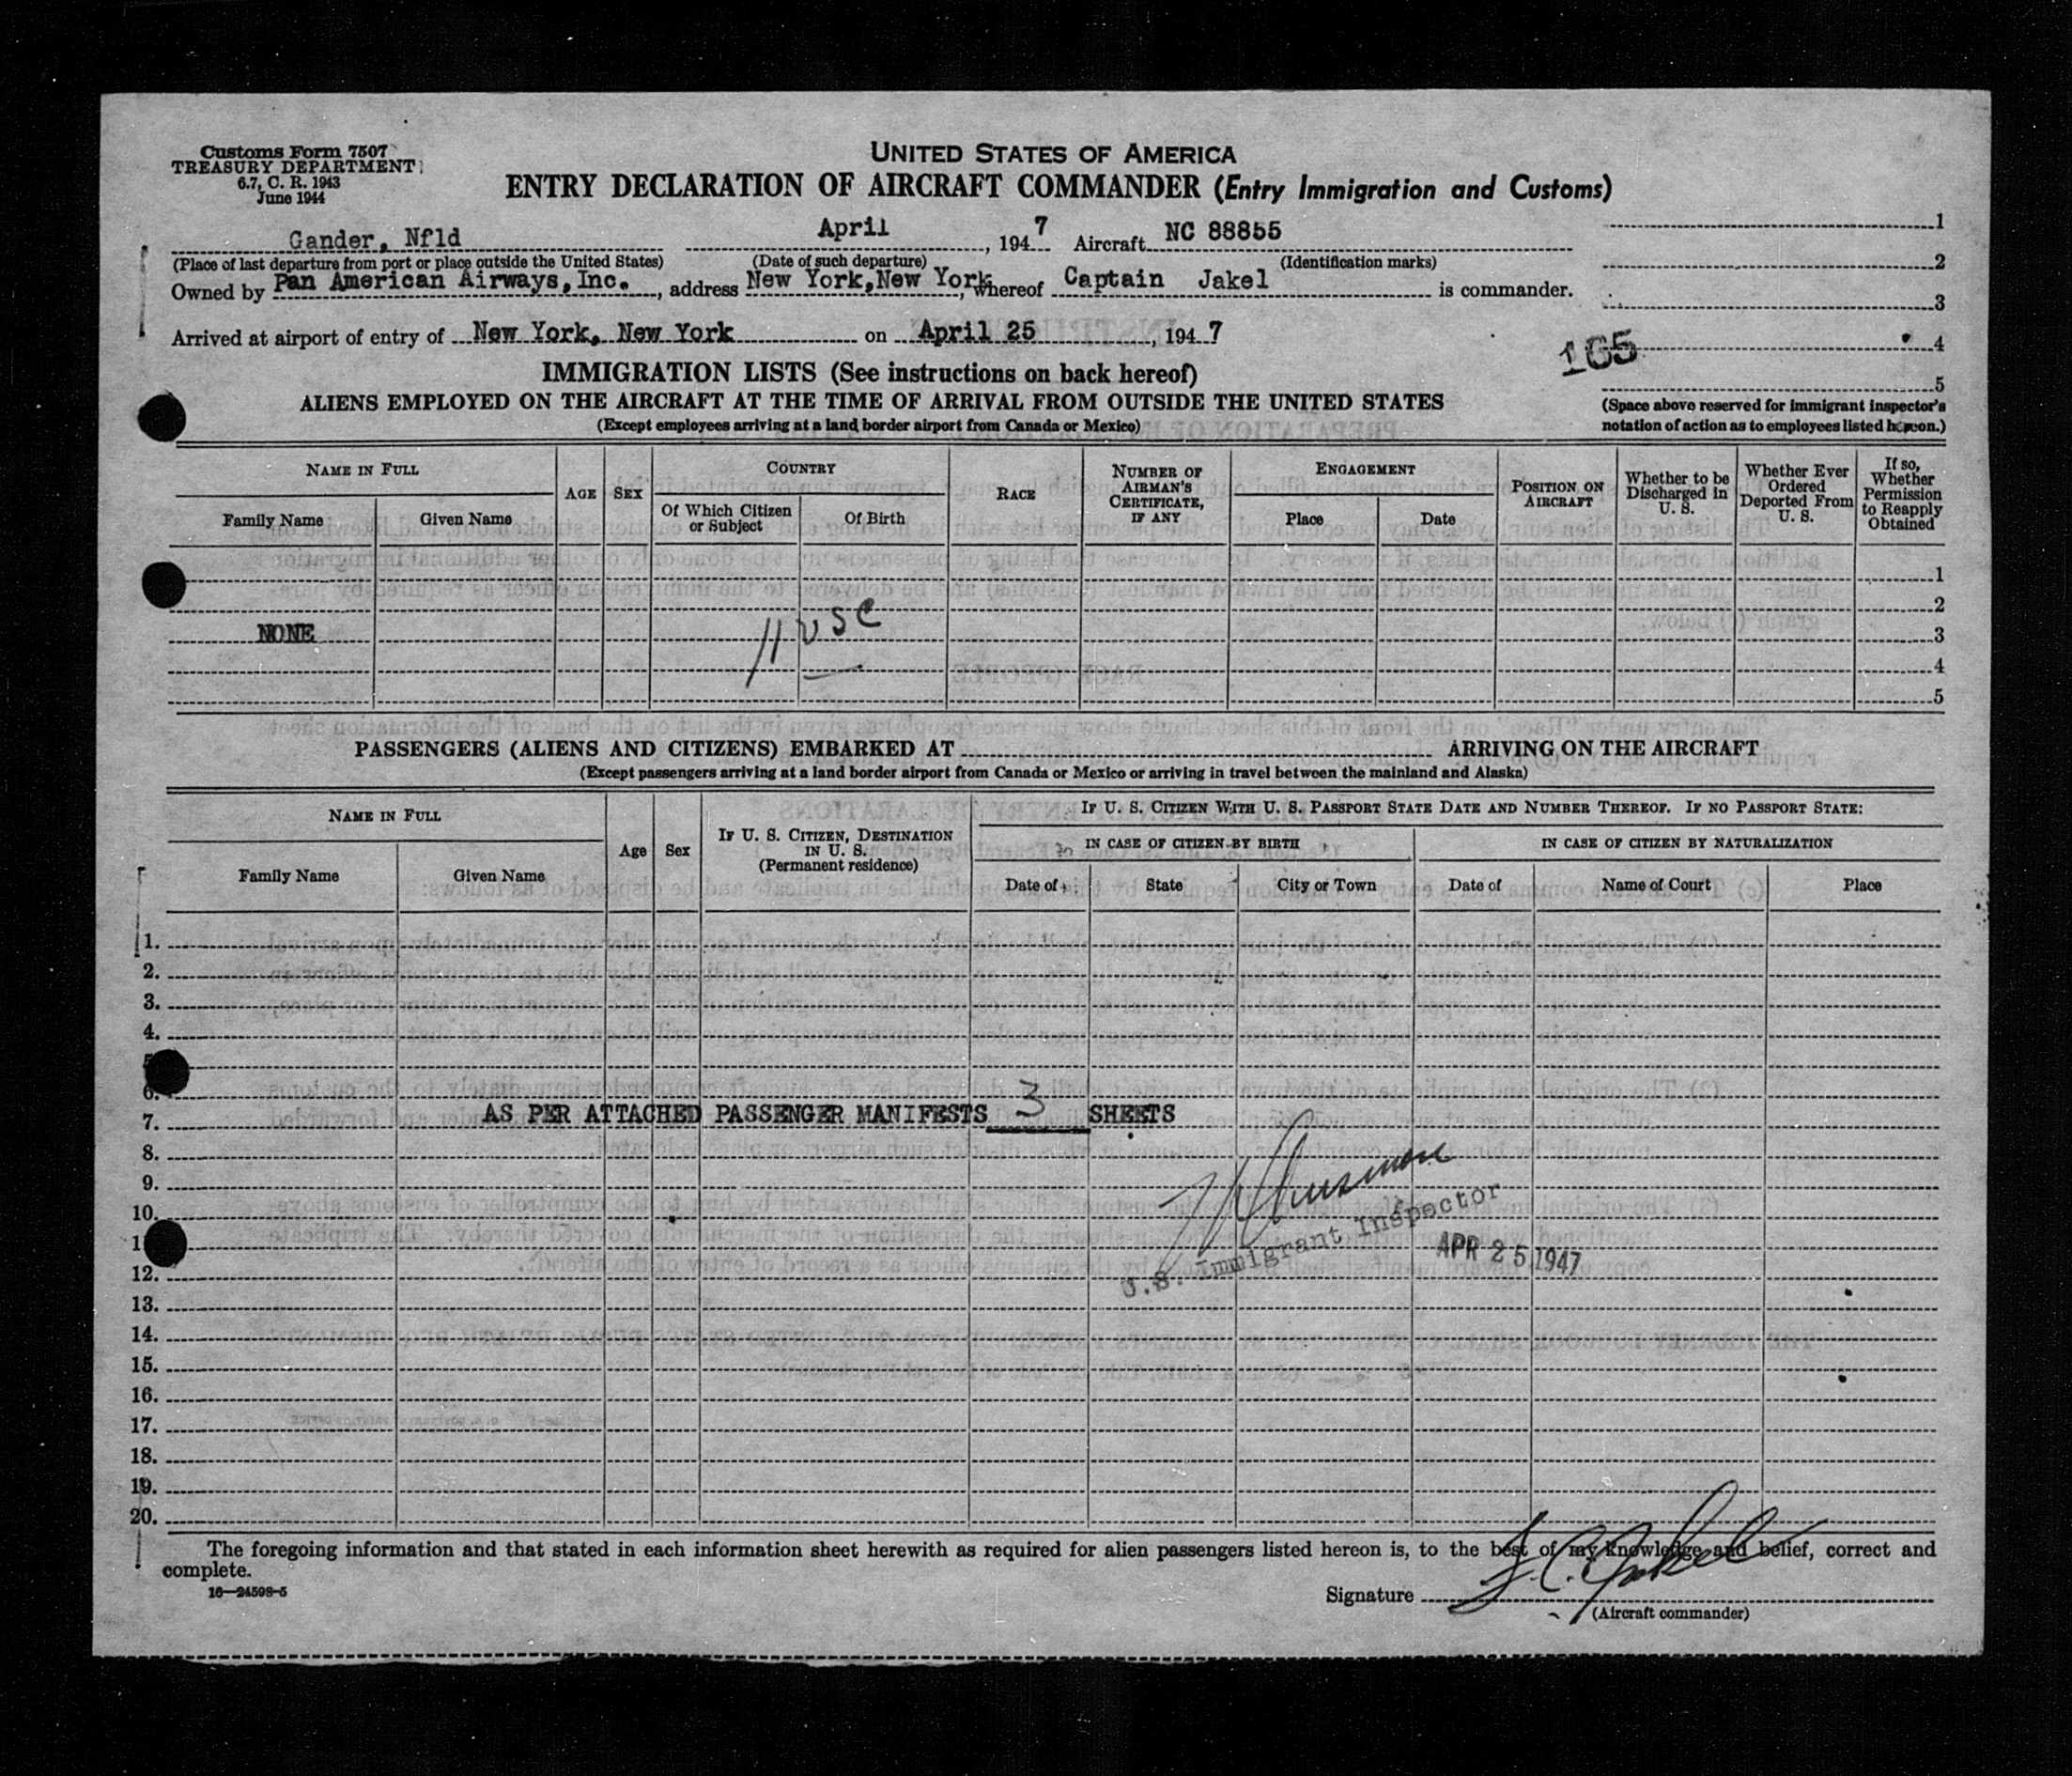 Customs Form 7507
TREASURY DEPARTMENT
6.7, C. R. 1943
June 1944
UNITED STATES OF AMERICA
ENTRY DECLARATION OF AIRCRAFT COMMANDER (Entry Immigration and Customs)
Gander, Nfld April , 194 7 Aircraft NC 88855 1
(Place of last departure from port or place outside the United States) (Date of such departure) (Identification marks) 2
Owned by Pan American Airways, Inc. , address New York, New York, whereof Captain Jakel is commander. 3
Arrived at airport of entry of New York, New York on April 25 , 194 7 4
165
IMMIGRATION LISTS (See instructions on back hereof) 5
ALIENS EMPLOYED ON THE AIRCRAFT AT THE TIME OF ARRIVAL FROM OUTSIDE THE UNITED STATES
(Except employees arriving at a land border airport from Canada or Mexico)
(Space above reserved for immigrant inspector's
notation of action as to employees listed hereon.)
NAME IN FULL AGE SEX COUNTRY RACE NUMBER OF AIRMAN'S CERTIFICATE, IF ANY ENGAGEMENT POSITION ON AIRCRAFT Whether to be Discharged in U. S. Whether Ever Ordered Deported From U. S. If so, Whether Permission to Reapply Obtained
Family Name Given Name Of Which Citizen or Subject Of Birth Place Date
1
2
NONE 11 USC 3
4
5
PASSENGERS (ALIENS AND CITIZENS) EMBARKED AT ARRIVING ON THE AIRCRAFT
(Except passengers arriving at a land border airport from Canada or Mexico or arriving in travel between the mainland and Alaska)
NAME IN FULL Age Sex IF U. S. CITIZEN, DESTINATION IN U. S. (Permanent residence) IF U. S. CITIZEN WITH U. S. PASSPORT STATE DATE AND NUMBER THEREOF. IF NO PASSPORT STATE:
IN CASE OF CITIZEN BY BIRTH IN CASE OF CITIZEN BY NATURALIZATION
Family Name Given Name Date of State City or Town Date of Name of Court Place
1.
2.
3.
4.
5
6.
7. AS PER ATTACHED PASSENGER MANIFESTS 3 SHEETS
8.
9.
10.
U.S. Immigrant Inspector
APR 25 1947
1
12.
13.
14.
15.
16.
17.
18.
19.
20.
The foregoing information and that stated in each information sheet herewith as required for alien passengers listed hereon is, to the best of my knowledge and belief, correct and
complete.
16—24598-5
Signature J. C. Jakel
(Aircraft commander)